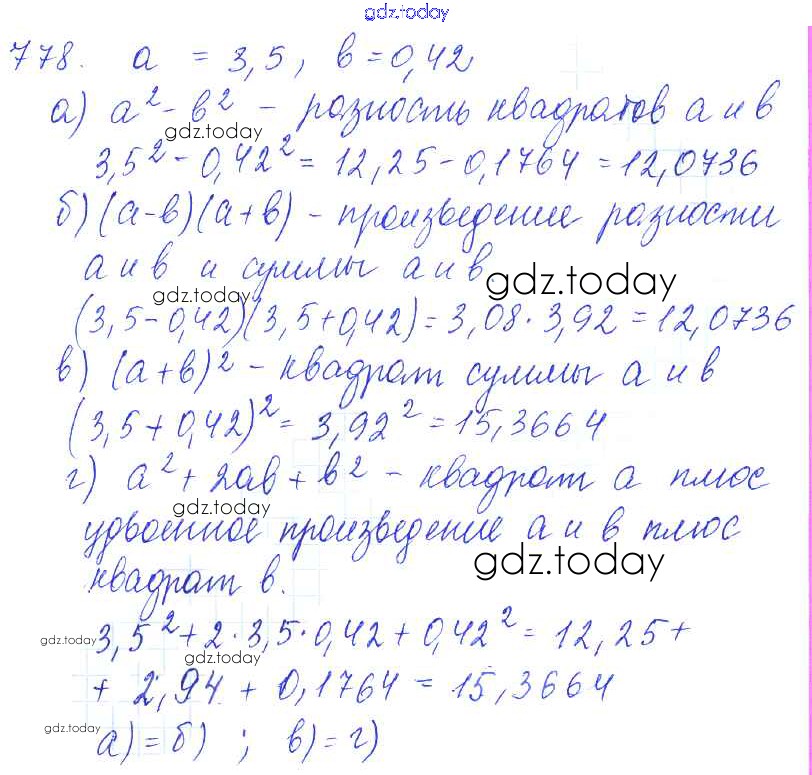 gdz.today
778. a = 3,5, в = 0,42
а) a² - в² - разность квадратов а и в
gdz.today
3,5² - 0,42² = 12,25 - 0,1764 = 12,0736
б) (а-в)(а+в) - произведение разности
а и в и суммы а и в.
gdz.today
gdz.today
(3,5-0,42)(3,5+0,42) = 3,08·3,92 = 12,0736
в) (а+в)² - квадрат суммы а и в
(3,5+0,42)² = 3,92² = 15,3664
г) a² + 2ав + в² - квадрат а плюс
gdz.today
удвоенное произведение а и в плюс
gdz.today
квадрат в.
3,5² + 2·3,5·0,42 + 0,42² = 12,25 +
gdz.today
gdz.today
+ 2,94 + 0,1764 = 15,3664
gdz.today
а) = б) ; в) = г)